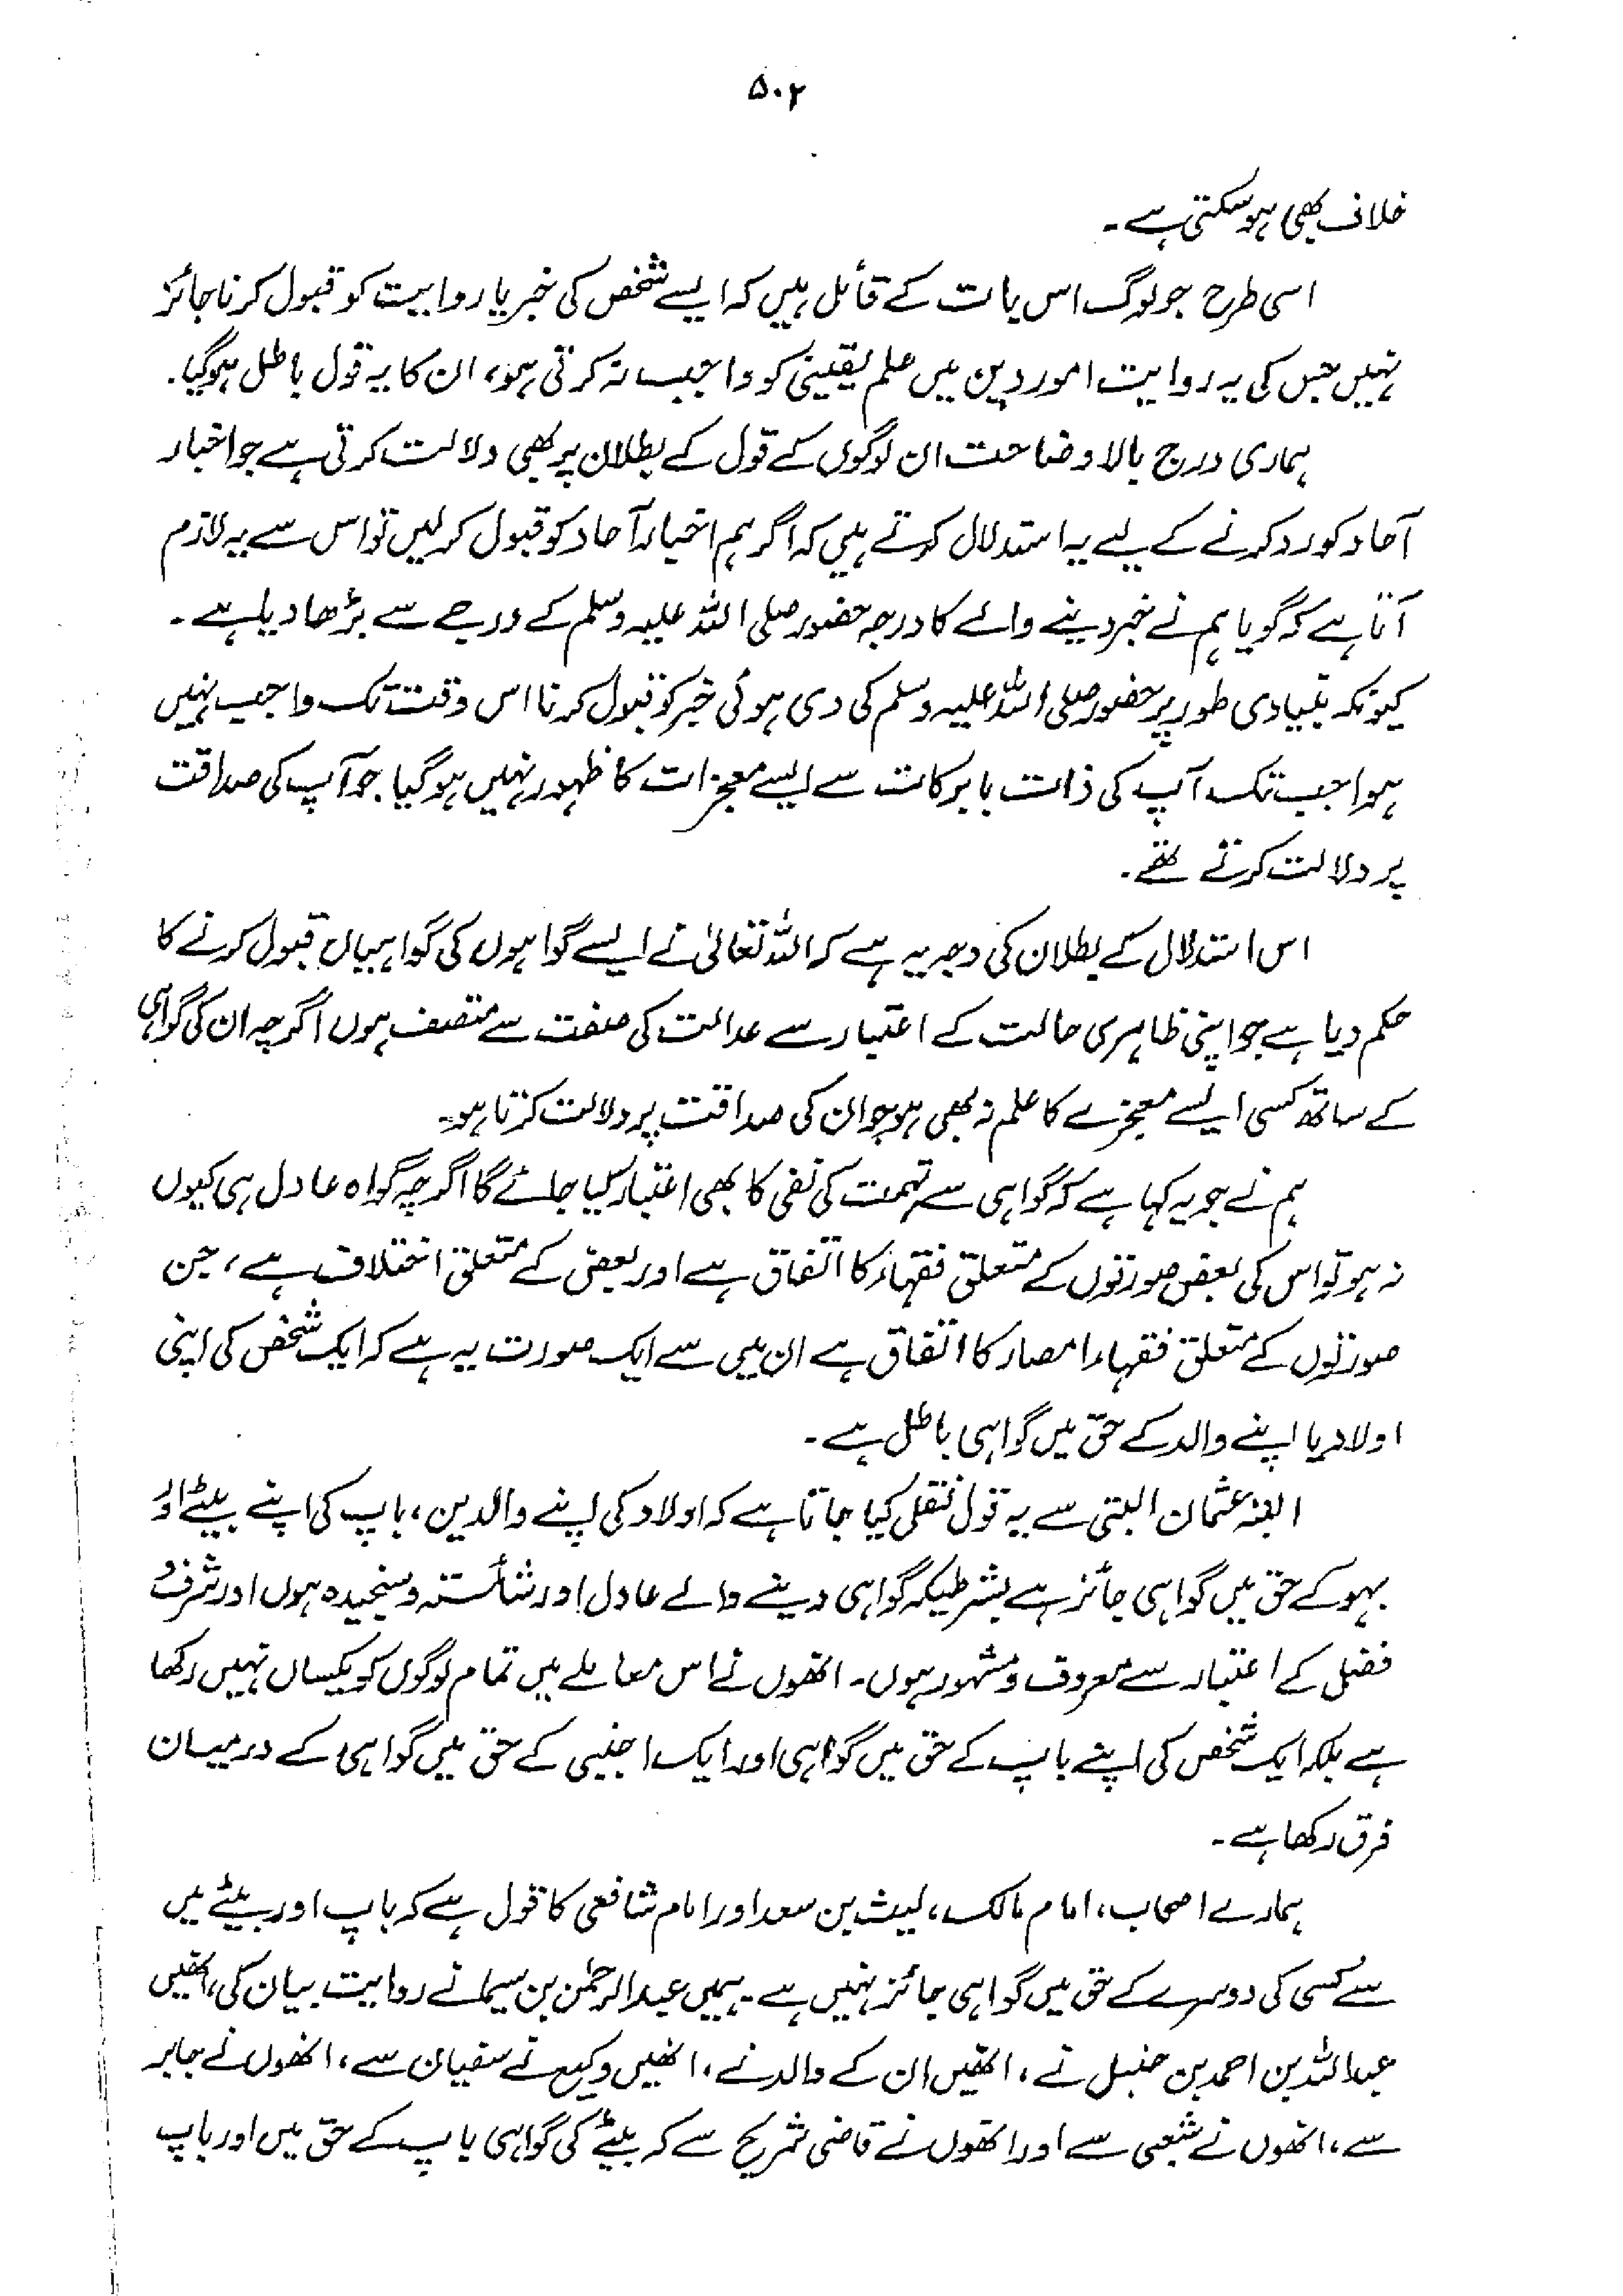 ۵۰۲
خلاف بھی ہو سکتی ہے۔
اسی طرح جو لوگ اس بات کے قائل ہیں کہ ایسے شخص کی خبر یا روایت کو قبول کرنا جائز
نہیں جس کی یہ روایت امور دین میں علم یقینی کو واجب نہ کرتی ہو، ان کا یہ قول باطل ہو گیا۔
ہماری درج بالا وضاحت ان لوگوں کے قول کے بطلان پر بھی دلالت کرتی ہے جو اخبار
آحاد کو رد کرنے کے لیے یہ استدلال کرتے ہیں کہ اگر ہم اخبار آحاد کو قبول کر لیں تو اس سے یہ لازم
آتا ہے کہ گویا ہم نے خبر دینے والے کا درجہ حضور صلی اللہ علیہ وسلم کے درجے سے بڑھا دیا ہے۔
کیونکہ بنیادی طور پر حضور صلی اللہ علیہ وسلم کی دی ہوئی خبر کو قبول کرنا اس وقت تک واجب نہیں
ہوا جب تک آپ کی ذات بابرکات سے ایسے معجزات کا ظہور نہیں ہو گیا جو آپ کی صداقت
پر دلالت کرتے تھے۔
اس استدلال کے بطلان کی وجہ یہ ہے کہ اللہ تعالیٰ نے ایسے گواہوں کی گواہیاں قبول کرنے کا
حکم دیا ہے جو اپنی ظاہری حالت کے اعتبار سے عدالت کی صفت سے متصف ہوں اگرچہ ان کی گواہی
کے ساتھ کسی ایسے معجزے کا علم نہ بھی ہو جو ان کی صداقت پر دلالت کرتا ہو۔
ہم نے جو یہ کہا ہے کہ گواہی سے تہمت کی نفی کا بھی اعتبار کیا جائے گا اگرچہ گواہ عادل ہی کیوں
نہ ہو تو اس کی بعض صورتوں کے متعلق فقہاء کا اتفاق ہے اور بعض کے متعلق اختلاف ہے، جن
صورتوں کے متعلق فقہاء امصار کا اتفاق ہے ان میں سے ایک صورت یہ ہے کہ ایک شخص کی اپنی
اولاد یا اپنے والد کے حق میں گواہی باطل ہے۔
البتہ عثمان البتی سے یہ قول نقل کیا جاتا ہے کہ اولاد کی اپنے والدین، باپ کی اپنے بیٹے اور
بہو کے حق میں گواہی جائز ہے بشرطیکہ گواہی دینے والے عادل اور شائستہ و سنجیدہ ہوں اور شرف و
فضل کے اعتبار سے معروف و مشہور ہوں۔ انھوں نے اس معاملے میں تمام لوگوں کو یکساں نہیں رکھا
ہے بلکہ ایک شخص کی اپنے باپ کے حق میں گواہی اور ایک اجنبی کے حق میں گواہی کے درمیان
فرق رکھا ہے۔
ہمارے اصحاب، امام مالک، لیث بن سعد اور امام شافعی کا قول ہے کہ باپ اور بیٹے میں
سے کسی کی دوسرے کے حق میں گواہی جائز نہیں ہے۔ ہمیں عبدالرحمٰن بن سیما نے روایت بیان کی، انھیں
عبداللہ بن احمد بن حنبل نے، انھیں ان کے والد نے، انھیں وکیع نے سفیان سے، انھوں نے جابر
سے، انھوں نے شعبی سے اور انھوں نے قاضی شریح سے کہ بیٹے کی گواہی باپ کے حق میں اور باپ